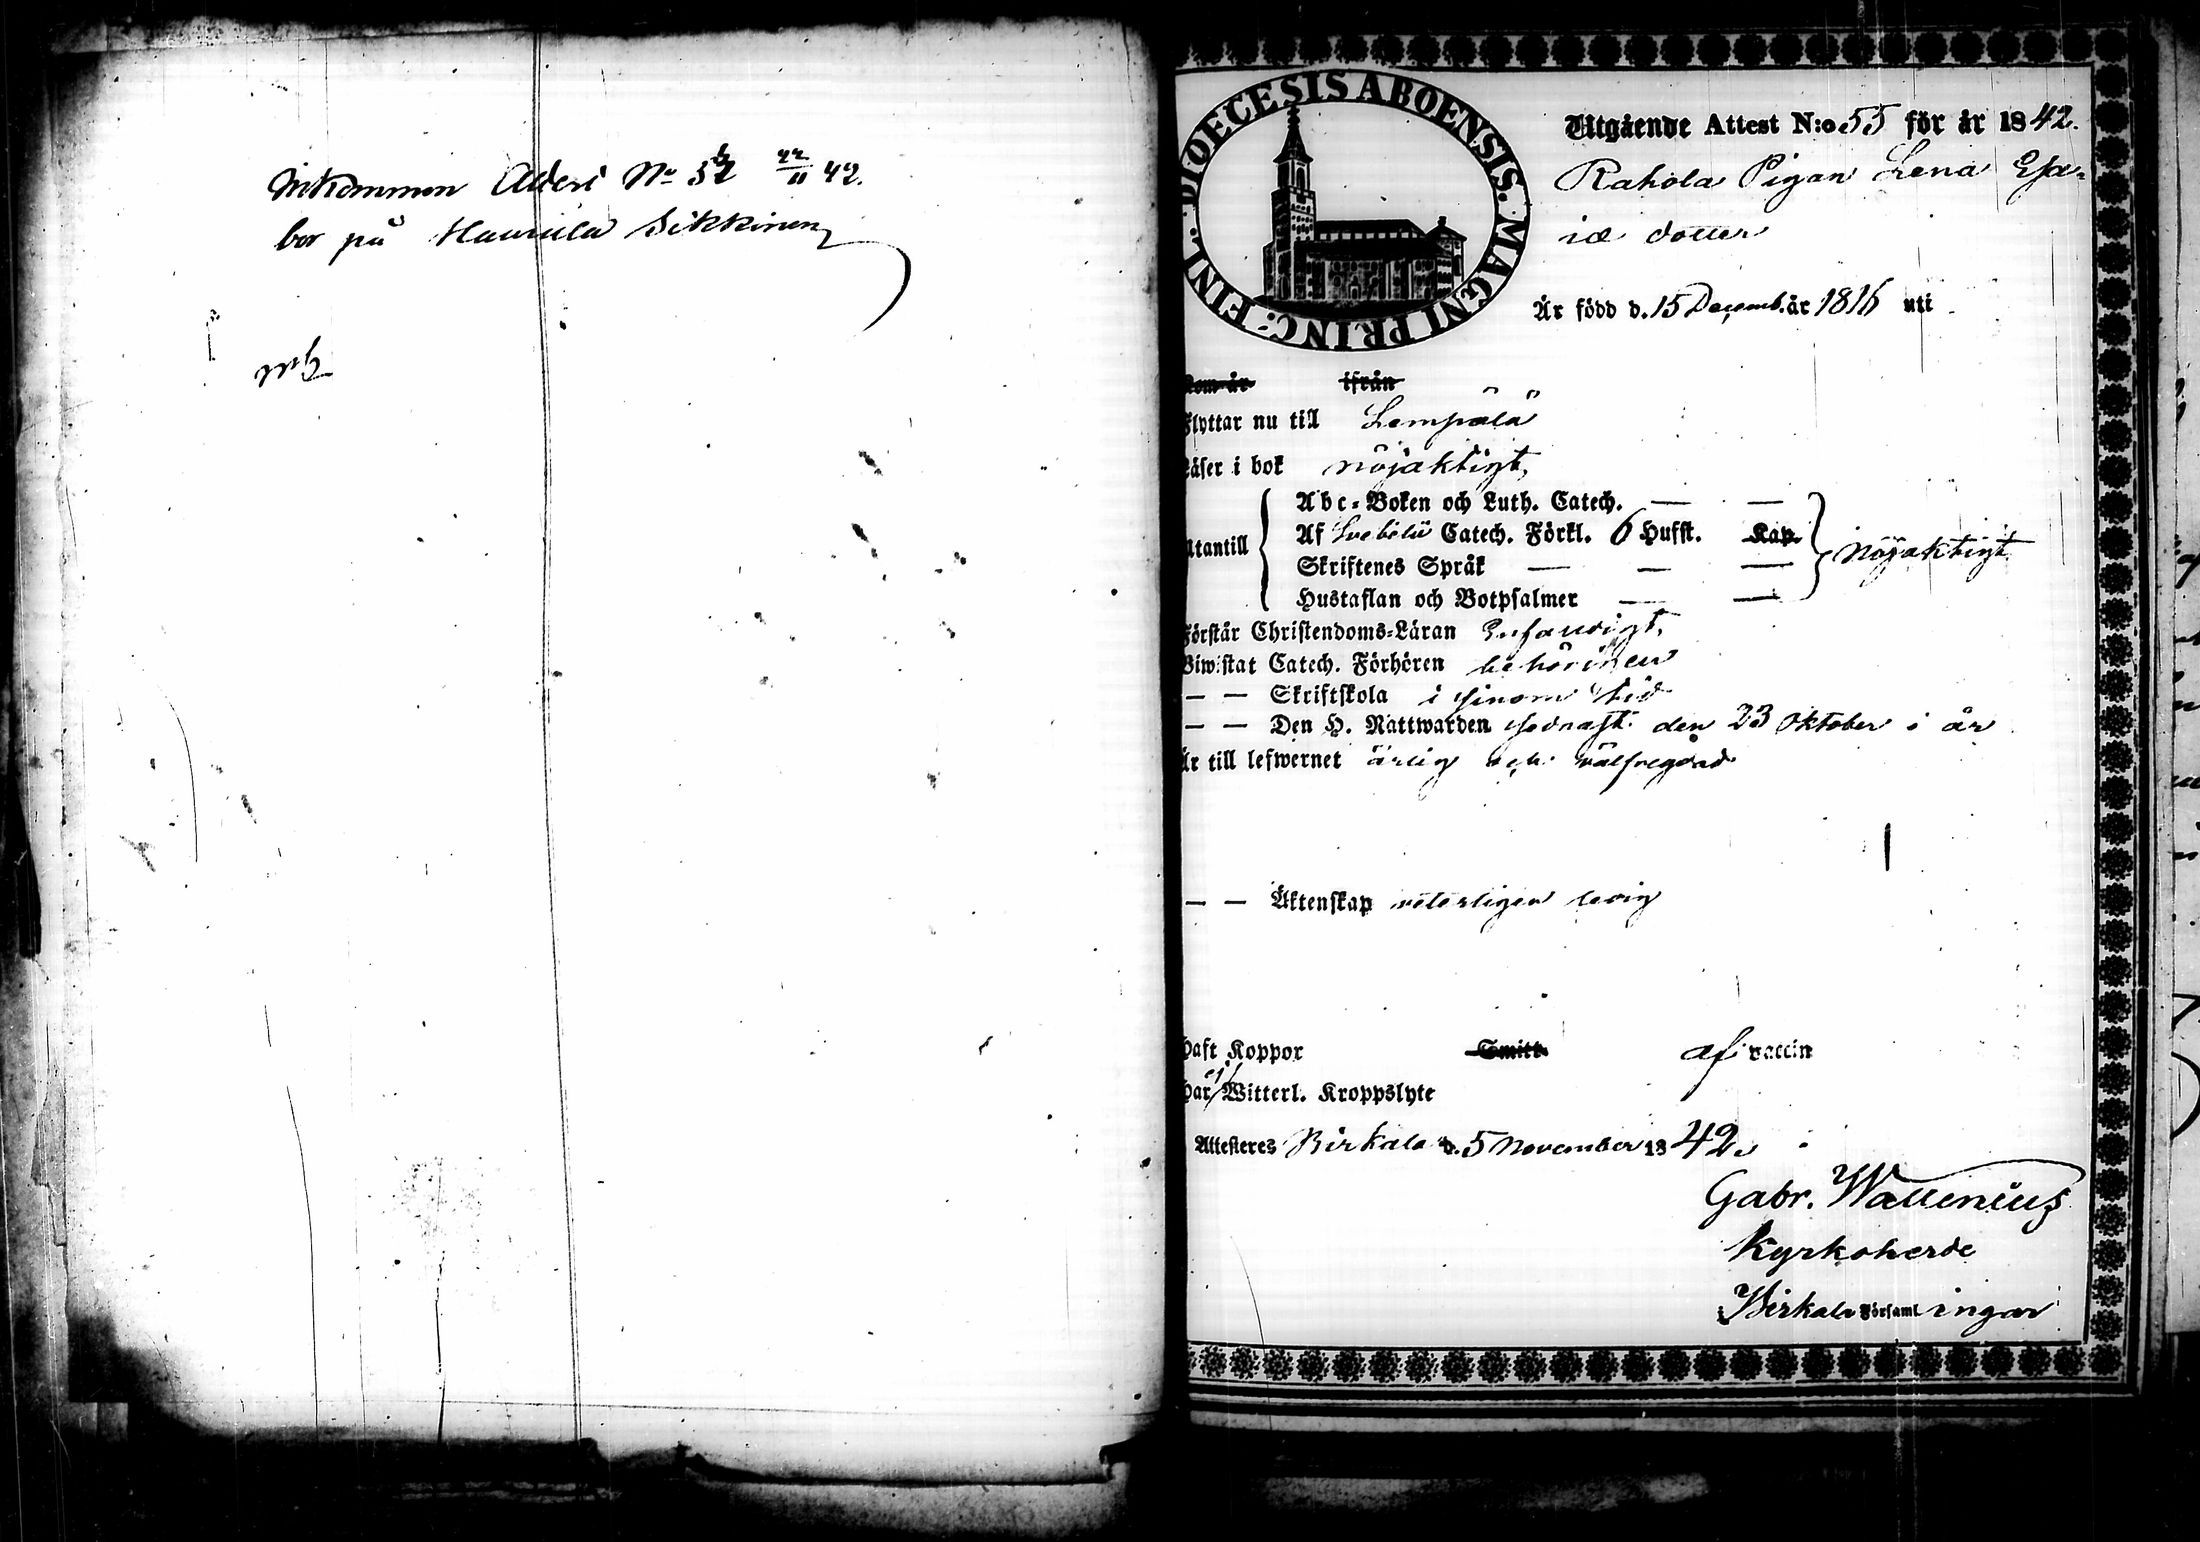 Inkommen Attest No 52 22/11 42.
bor på Hauiula Sikkinen
DIOECESIS ABOENSIS. MAGNI PRINC: FINL:
Utgående Attest N:o 55 för år 1842.
Rahola Pigan Lena Esa=
iæ dotter
Är född d. 15 Decemb. år 1816 uti
kom år ifrån
Flyttar nu till Lempälä
Läser i bok nöjaktigt,
Abc=Boken och Luth. Catech. — —
Utantill Af Svebelii Catech. Förkl. 6 Hufst. Kap. nöjaktigt
Skriftenes Språk — — —
Hustaflan och Botpsalmer — —
Förstår Christendoms=Läran enfaldigt,
Biwistat Catech. Förhören behörigen
— — Skriftskola i sinom tid
— — Den H. Nattwarden sednast den 23 Oktober i år
Är till lefwernet ärlig och välfregdad
— — Äktenskap veterligen ledig
Haft Koppor Smitt. af vaccin
Har ej Witterl. Kroppslyte
Attesteras Birkala d. 5 November 1842.
Gabr. Wallenius
Kyrkoherde
i Birkala Församl ingar